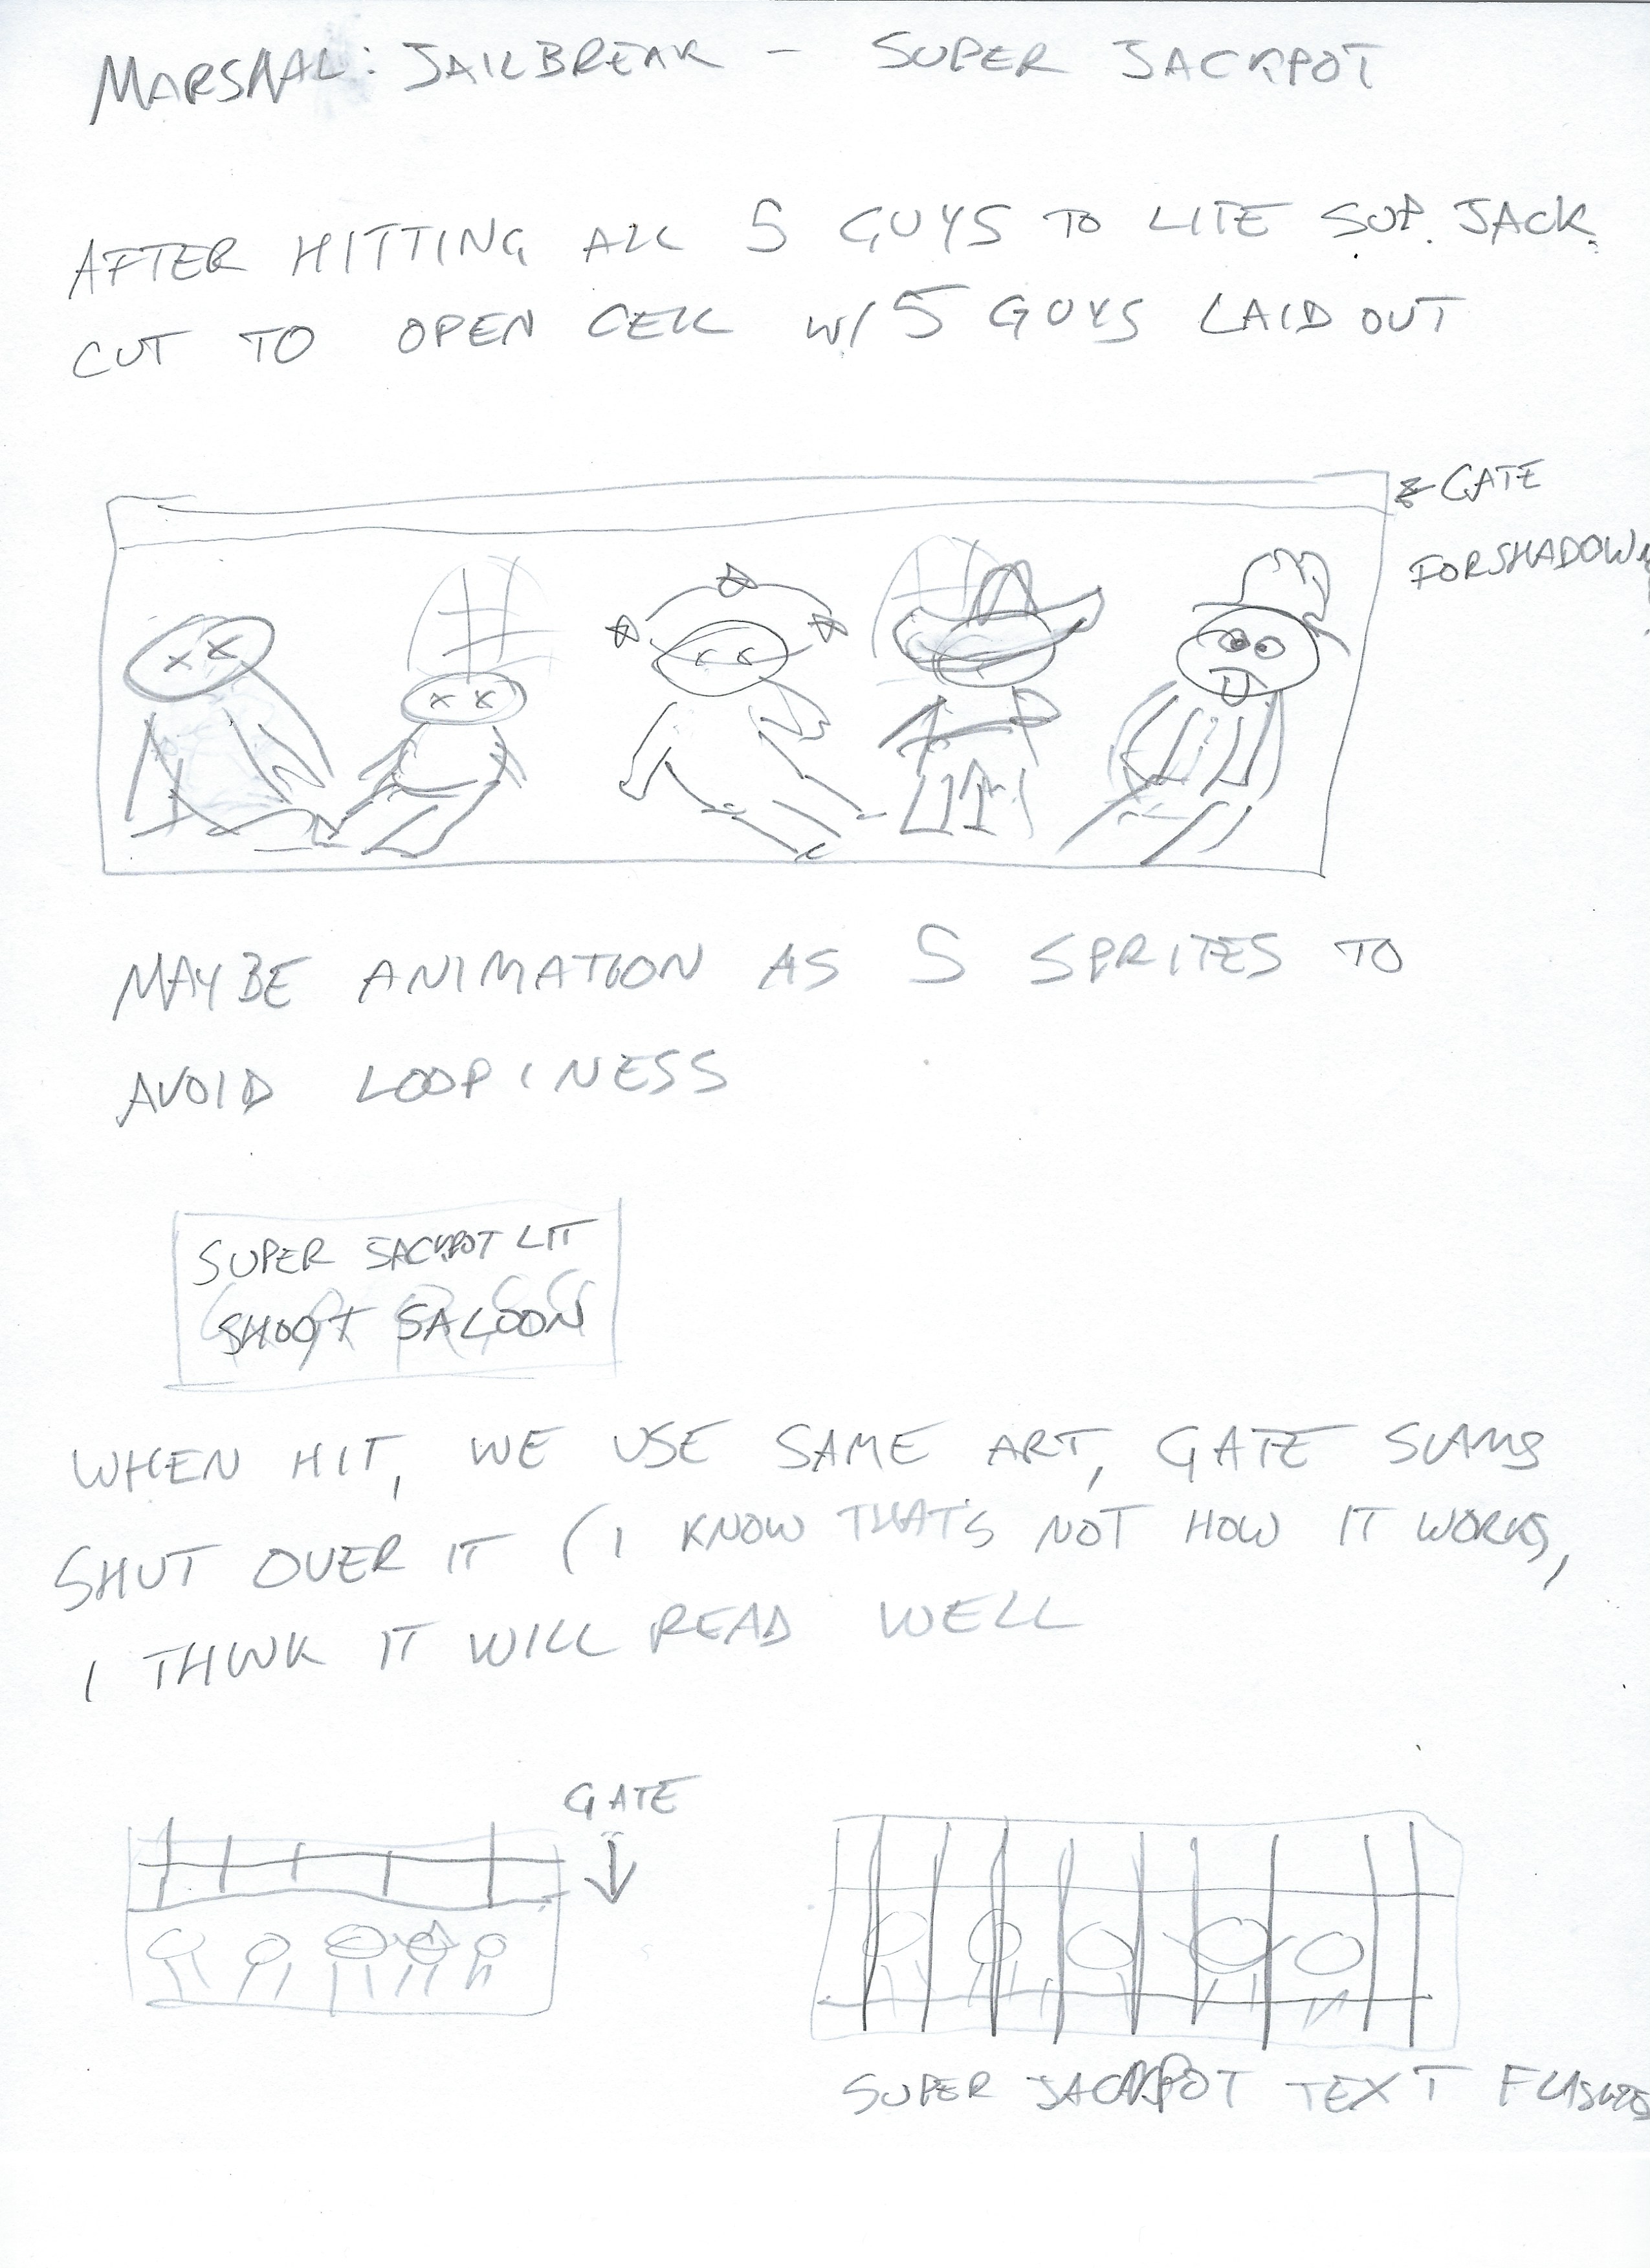 MARSHAL: JAILBREAK - SUPER JACKPOT
AFTER HITTING ALL 5 GUYS TO LITE SUP. JACK.
CUT TO OPEN CELL W/ 5 GUYS LAID OUT
← GATE
FORSHADOW
MAYBE ANIMATION AS 5 SPRITES TO
AVOID LOOPINESS
SUPER JACKPOT LIT
SHOOT SALOON
WHEN HIT, WE USE SAME ART, GATE SLAMS
SHUT OVER IT (I KNOW THAT'S NOT HOW IT WORKS,
I THINK IT WILL READ WELL
GATE
SUPER JACKPOT TEXT FLASHES